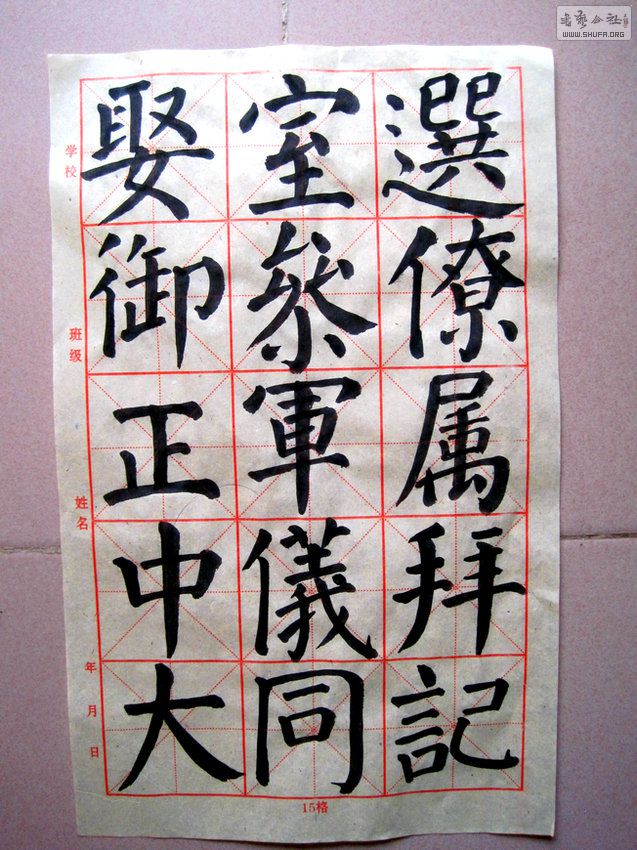 選僚属拜記
室叅軍儀同
娶御正中大
学校
班级
姓名
年月日
15格
WWW.SHUFA.ORG